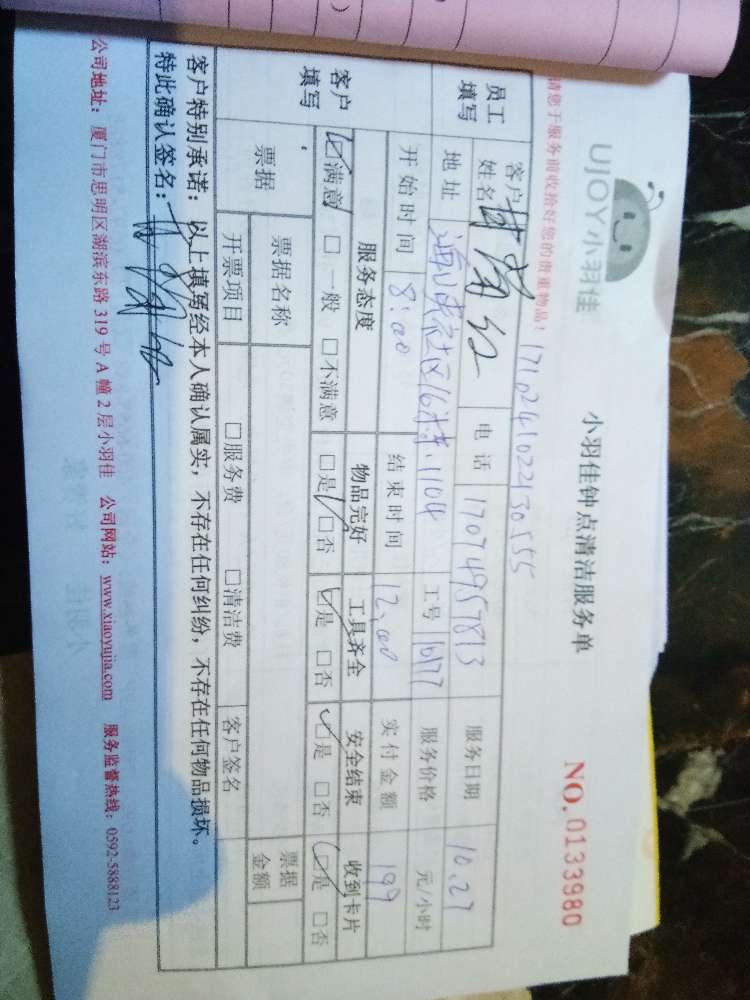 UJOY小羽佳
小羽佳钟点清洁服务单
NO. 0133980
请您于服务前收拾好您的贵重物品！
员工填写
客户姓名
电话 17074957873
服务日期 10.27
地址 社区16 1104
工号 1077
服务价格 元/小时
开始时间 8:00
结束时间 12:00
实付金额 199
客户填写
服务态度 物品完好 工具齐全 安全结束 收到卡片
☑满意 □一般 □不满意 □是 □否 ☑是 □否 ☑是 □否 ☑是 □否
票据 票据名称 票据金额
开票项目 □服务费 □清洁费 客户签名
客户特别承诺：以上填写经本人确认属实，不存在任何纠纷，不存在任何物品损坏。
特此确认签名：
公司地址：厦门市思明区湖滨东路 319 号 A 幢 2 层小羽佳 公司网站：www.xiaoyujia.com 服务监督热线：0592-5888123